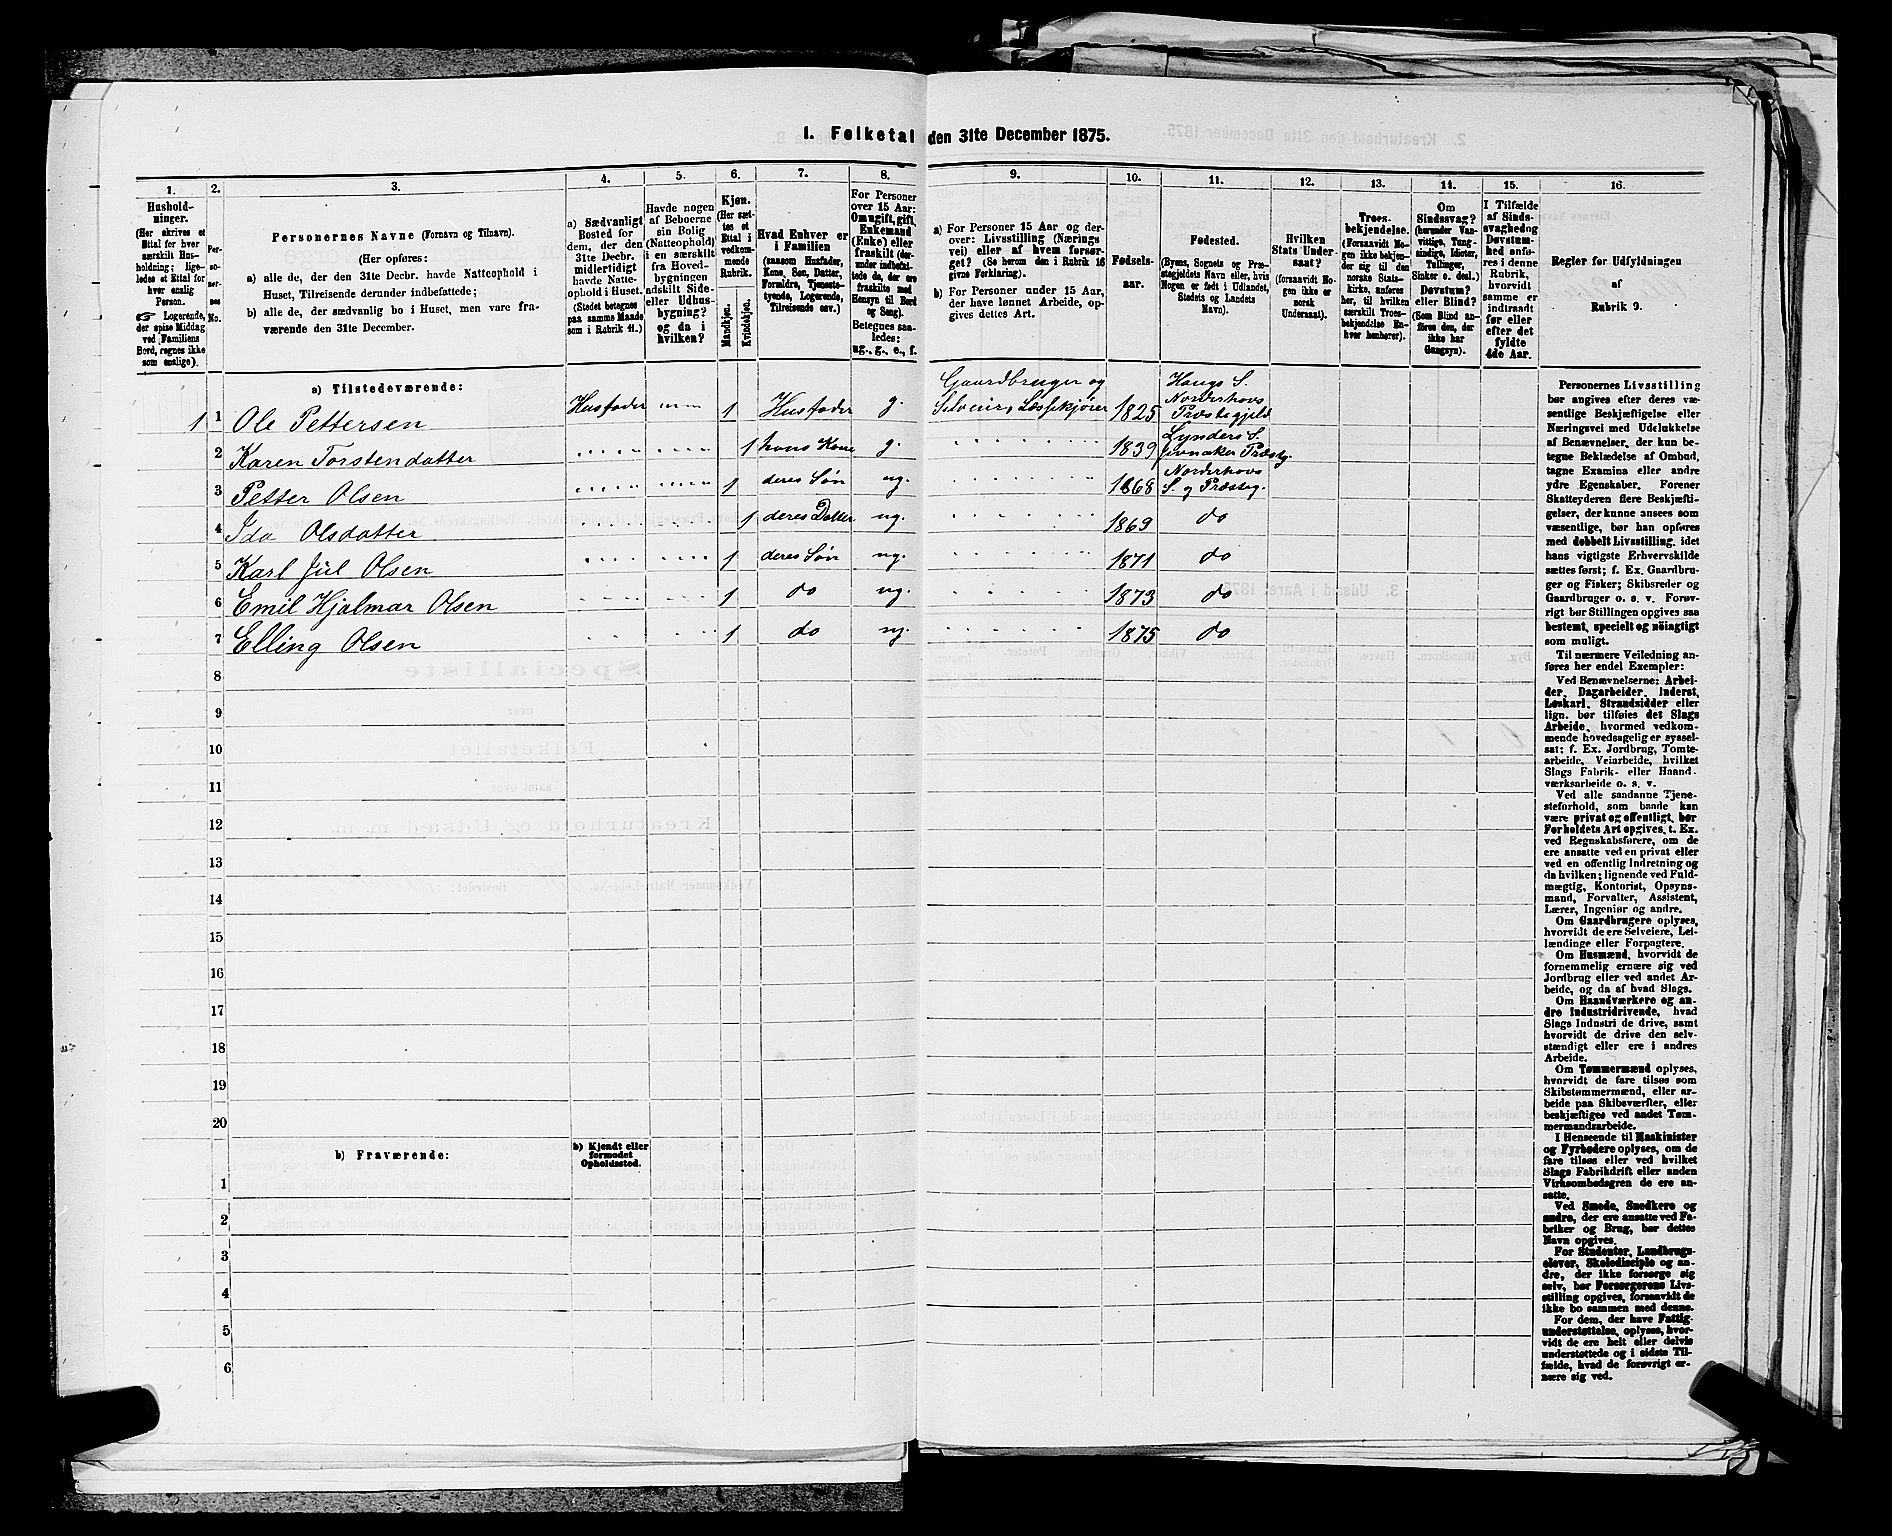 1. Folketal den 31te December 1875.
1.
2.
3.
4.
5.
6.
7.
8.
9.
10.
11.
12.
13.
14.
15.
16.
Hushold-
ninger.
(Her skrives et
Ettal for hver
særskilt Hus-
holdning; lige-
ledes et Ettal for
hver enslig
Person.
☞ Logerende,
der spise Middag
ved Familiens
Bord, regnes ikke
som enslige).
Per-
so-
ner-
nes
No.
Personernes Navne (Fornavn og Tilnavn).
(Her opføres:
a) alle de, der den 31te Decbr. havde Natteophold i
Huset, Tilreisende derunder indbefattede;
b) alle de, der sædvanlig bo i Huset, men vare fra-
værende den 31te December.
a) Sædvanligt
Bosted for
dem, der den
31te Decbr.
midlertidigt
havde Natte-
ophold i Huset.
(Stedet betegnes
paa samme Maade
som i Rubrik 11.)
Havde nogen
af Beboerne
sin Bolig
(Natteophold)
i en særskilt
fra Hoved-
bygningen
adskilt Side-
eller Udhus-
bygning?
og da i
hvilken?
Kjøn.
(Her sæt-
tes et
Ettal i
vedkom-
mende
Rubrik.
Mandkjøn.
Kvindekjøn.
Hvad Enhver er
i Familien
(saasom Husfader,
Kone, Søn, Datter,
Forældre, Tjeneste-
tyende, Logerende,
Tilreisende osv.)
For Personer
over 15 Aar:
Om ugift, gift,
Enkemand
(Enke) eller
fraskilt
Betegnes saa-
ledes:
ug., g., e., f.
a) For Personer 15 Aar og der-
over: Livsstilling (Nærings
vei) eller af hvem forsør-
get? (Se herom den i Rubrik 16
givne Forklaring).
b) For Personer under 15 Aar,
der have lønnet Arbeide, op-
gives dettes Art.
Fødsels-
aar.
Fødested.
(Byens, Sognets og Præ-
stegjeldets Navn eller, hvis
Nogen er født i Udlandet,
Stedets og Landets
Navn).
Hvilken
Stats Under-
saat?
(forsaavidt No-
gen ikke er
norsk
Undersaat).
Troes-
bekjendelse.
(Forsaavidt No-
gen ikke bekjen-
der sig til den
norske Stats-
kirke, anføres
her, til hvilken
særskilt Troes-
bekjendelse En-
hver henhører).
Om
Sindssvag?
(herunder Van-
vittige, Tung-
sindige, Idioter,
Tullinger,
Sinker o. desl.)
Døvstum?
eller Blind?
(Som Blind an-
føres den, der
ikke har
Gangsyn).
I Tilfælde
af Sinds-
svaghed og
Døvstum-
hed anfø-
res i denne
Rubrik,
hvorvidt
samme er
indtraadt
før eller
efter det
fyldte
4de Aar.
Regler for Udfyldningen
af
Rubrik 9.
a) Tilstedeværende:
1 1 Ole Pettersen Husfader 1 Husfader g. Gaardbruger og Selveier, Læssekjører 1825 Haugs S. Norderhovs Præstegjeld
2 Karen Torstendatter 1 hans Kone g. 1839 Lynders S. Jevnaker Præstg.
3 Petter Olsen 1 deres Søn ug. 1868 Norderhovs S. og Præsteg.
4 Ida Olsdatter 1 deres Datter ug. 1869 do
5 Karl Jul Olsen 1 deres Søn ug. 1871 do
6 Emil Hjalmar Olsen 1 do ug. 1873 do
7 Elling Olsen 1 do ug. 1875 do
8
9
10
11
12
13
14
15
16
17
18
19
20
b) Fraværende:
b) Kjendt eller
formodet
Opholdssted.
1
2
3
4
5
6
Personernes Livsstilling
bør angives efter deres væ-
sentlige Beskjæftigelse eller
Næringsvei med Udelukkelse
af Benævnelser, der kun be-
tegne Beklædelse af Ombud,
tagne Examina eller andre
ydre Egenskaber. Forener
Skatteyderen flere Beskjæfti-
gelser, der kunne ansees som
væsentlige, bør han opføres
med dobbelt Livsstilling, idet
hans vigtigste Erhvervskilde
sættes først; f. Ex. Gaardbru-
ger og Fisker; Skibsreder og
Gaardbruger o. s. v. Forøv-
rigt bør Stillingen opgives saa
bestemt, specielt og nøiagtigt
som muligt.
Til nærmere Veiledning an-
føres her endel Exempler:
Ved Benævnelserne: Arbei-
der, Dagarbeider, Inderst,
Løskarl, Strandsidder eller
lign. bør tilføies det Slags
Arbeide, hvormed vedkom-
mende hovedsagelig er syssel-
sat; f. Ex. Jordbrug, Tomte-
arbeide, Veiarbeide, hvilket
Slags Fabrik- eller Haand-
værksarbeide o. s. v.
Ved alle saadanne Tjene-
steforhold, som baade kan
være privat og offentligt, bør
Forholdets Art opgives, t. Ex.
ved Regnskabsførere, om de
ere ansatte ved en privat eller
ved en offentlig Indretning og
da hvilken; lignende ved Fuld-
mægtig, Kontorist, Opsyns-
mand, Forvalter, Assistent,
Lærer, Ingeniør og andre.
Om Gaardbrugere oplyses,
hvorvidt de ere Selveiere, Lei-
lændinge eller Forpagtere.
Om Husmænd, hvorvidt de
fornemmelig ernære sig ved
Jordbrug eller ved andet Ar-
beide, og da af hvad Slags.
Om Haandværkere og an-
dre Industridrivende, hvad
Slags Industri de drive, samt
hvorvidt de drive den selv-
stændigt eller ere i andres
Arbeide.
Om Tømmermænd oplyses,
hvorvidt de fare tilsøs som
Skibstømmermænd, eller ar-
beide paa Skibsværfter, eller
beskjæftiges ved andet Tøm-
mermandsarbeide.
I Henseende til Maskinister
og Fyrbødere oplyses, om de
fare tilsøs eller ved hvilket
Slags Fabrikdrift eller anden
Virksombedsgren de ere an-
satte.
Ved Smede, Snedkere og
andre, der ere ansatte ved Fa-
briker og Brug, bør dettes
Navn opgives.
For Studenter, Landbrugs-
elever, Skoledisciple og an-
dre, der ikke forsørge sig
selv, bør Forsørgerens Livs-
stilling opgives, forsaavidt de
ikke bo sammen med denne.
For dem, der have Fattig-
understøttelse, oplyses, hvor-
vidt de ere helt eller delvis
understøttede og i sidste Til-
fælde, hvad de forøvrigt er-
nære sig ved.